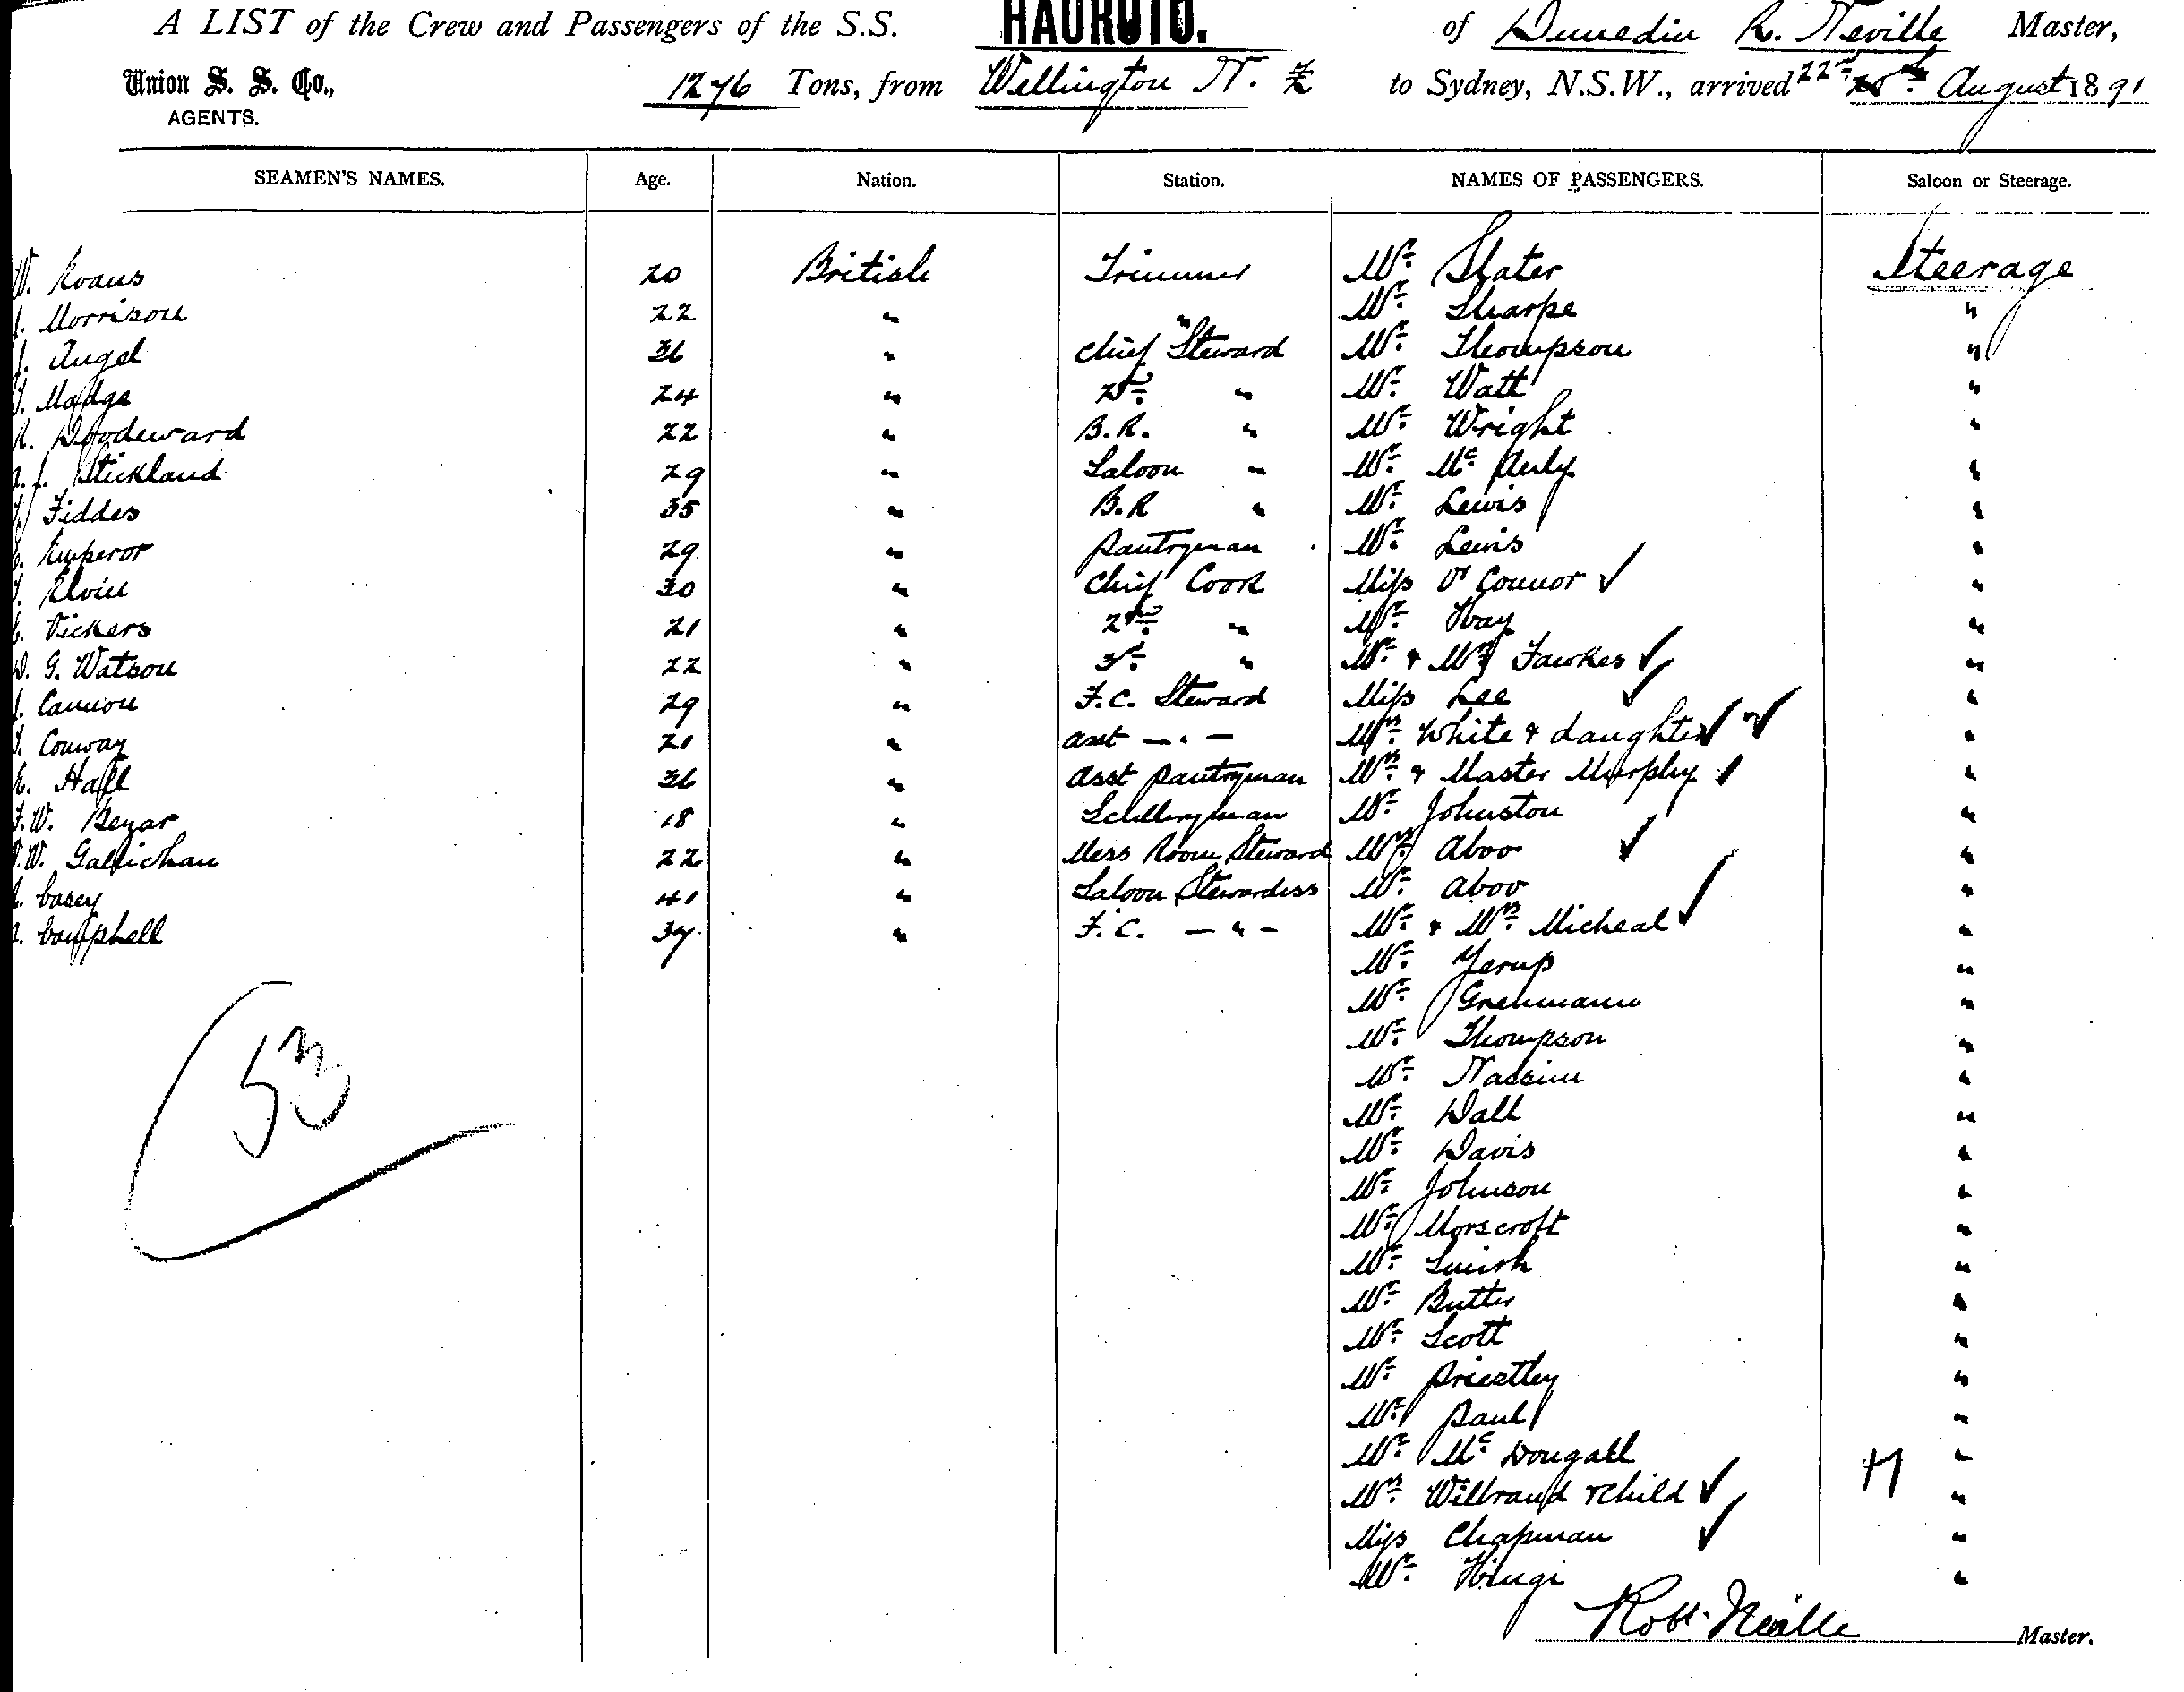 A LIST of the Crew and Passengers of the S.S. HAUROTO. of Dunedin R. Neville Master,
Union S. S. Co., 1276 Tons, from Wellington N. Z to Sydney, N.S.W., arrived 22nd August 1891
AGENTS.
SEAMEN'S NAMES. Age. Nation. Station. NAMES OF PASSENGERS. Saloon or Steerage.
W. Evans 20 British Trimmer Mr. Slater Steerage
J. Morrison 22 " " Mr. Sharpe "
J. Angel 36 " Chief Steward Mr. Thompson "
Madge 24 " 2nd " Mr. Watt "
R. Woodeward 22 " B.R. " Mr. Wright "
Stickland 29 " Saloon " Mr. Mc "
Fiddes 35 " B.R " Mr. Lewis "
Emperor 29 " Pantryman Mr. Lewis "
Elvin 30 " Chief Cook Miss O'Connor ✓ "
Vickers 21 " 2nd " Mr. Hay "
G. Watson 22 " 3rd " Mr. & Mrs Fawkes ✓ "
J. Cannon 29 " F.C. Steward Miss Lee ✓ "
Conway 21 " asst — " — Mrs. White & daughter ✓ ✓ "
E. Hall 36 " Asst Pantryman Mrs. & Master Murphy ✓ "
F.W. Begar 18 " Sculleryman Mr. Johnston "
W. Gallichan 22 " Mess Room Steward Mrs Aboo ✓ "
Casey 41 " Saloon Stewardess Mr. Aboo "
Campbell 37 " F.C. — " — Mr. & Mrs. Micheal ✓ "
Mr. Jerup "
Mr. Grenmann "
Mr. Thompson "
Mr. Nassim "
Mr. Wall "
Mr. Davis "
Mr. Johnson "
Mr. Morscroft "
Mr. "
Mr. Butter "
Mr. Scott "
Mr. Priestley "
Mr. Paul "
Mr. Mc Dougall "
Mrs. Wilbrand & child ✓ H "
Miss Chapman ✓ "
Mr. Hingi "
53
Robt. Neville Master.